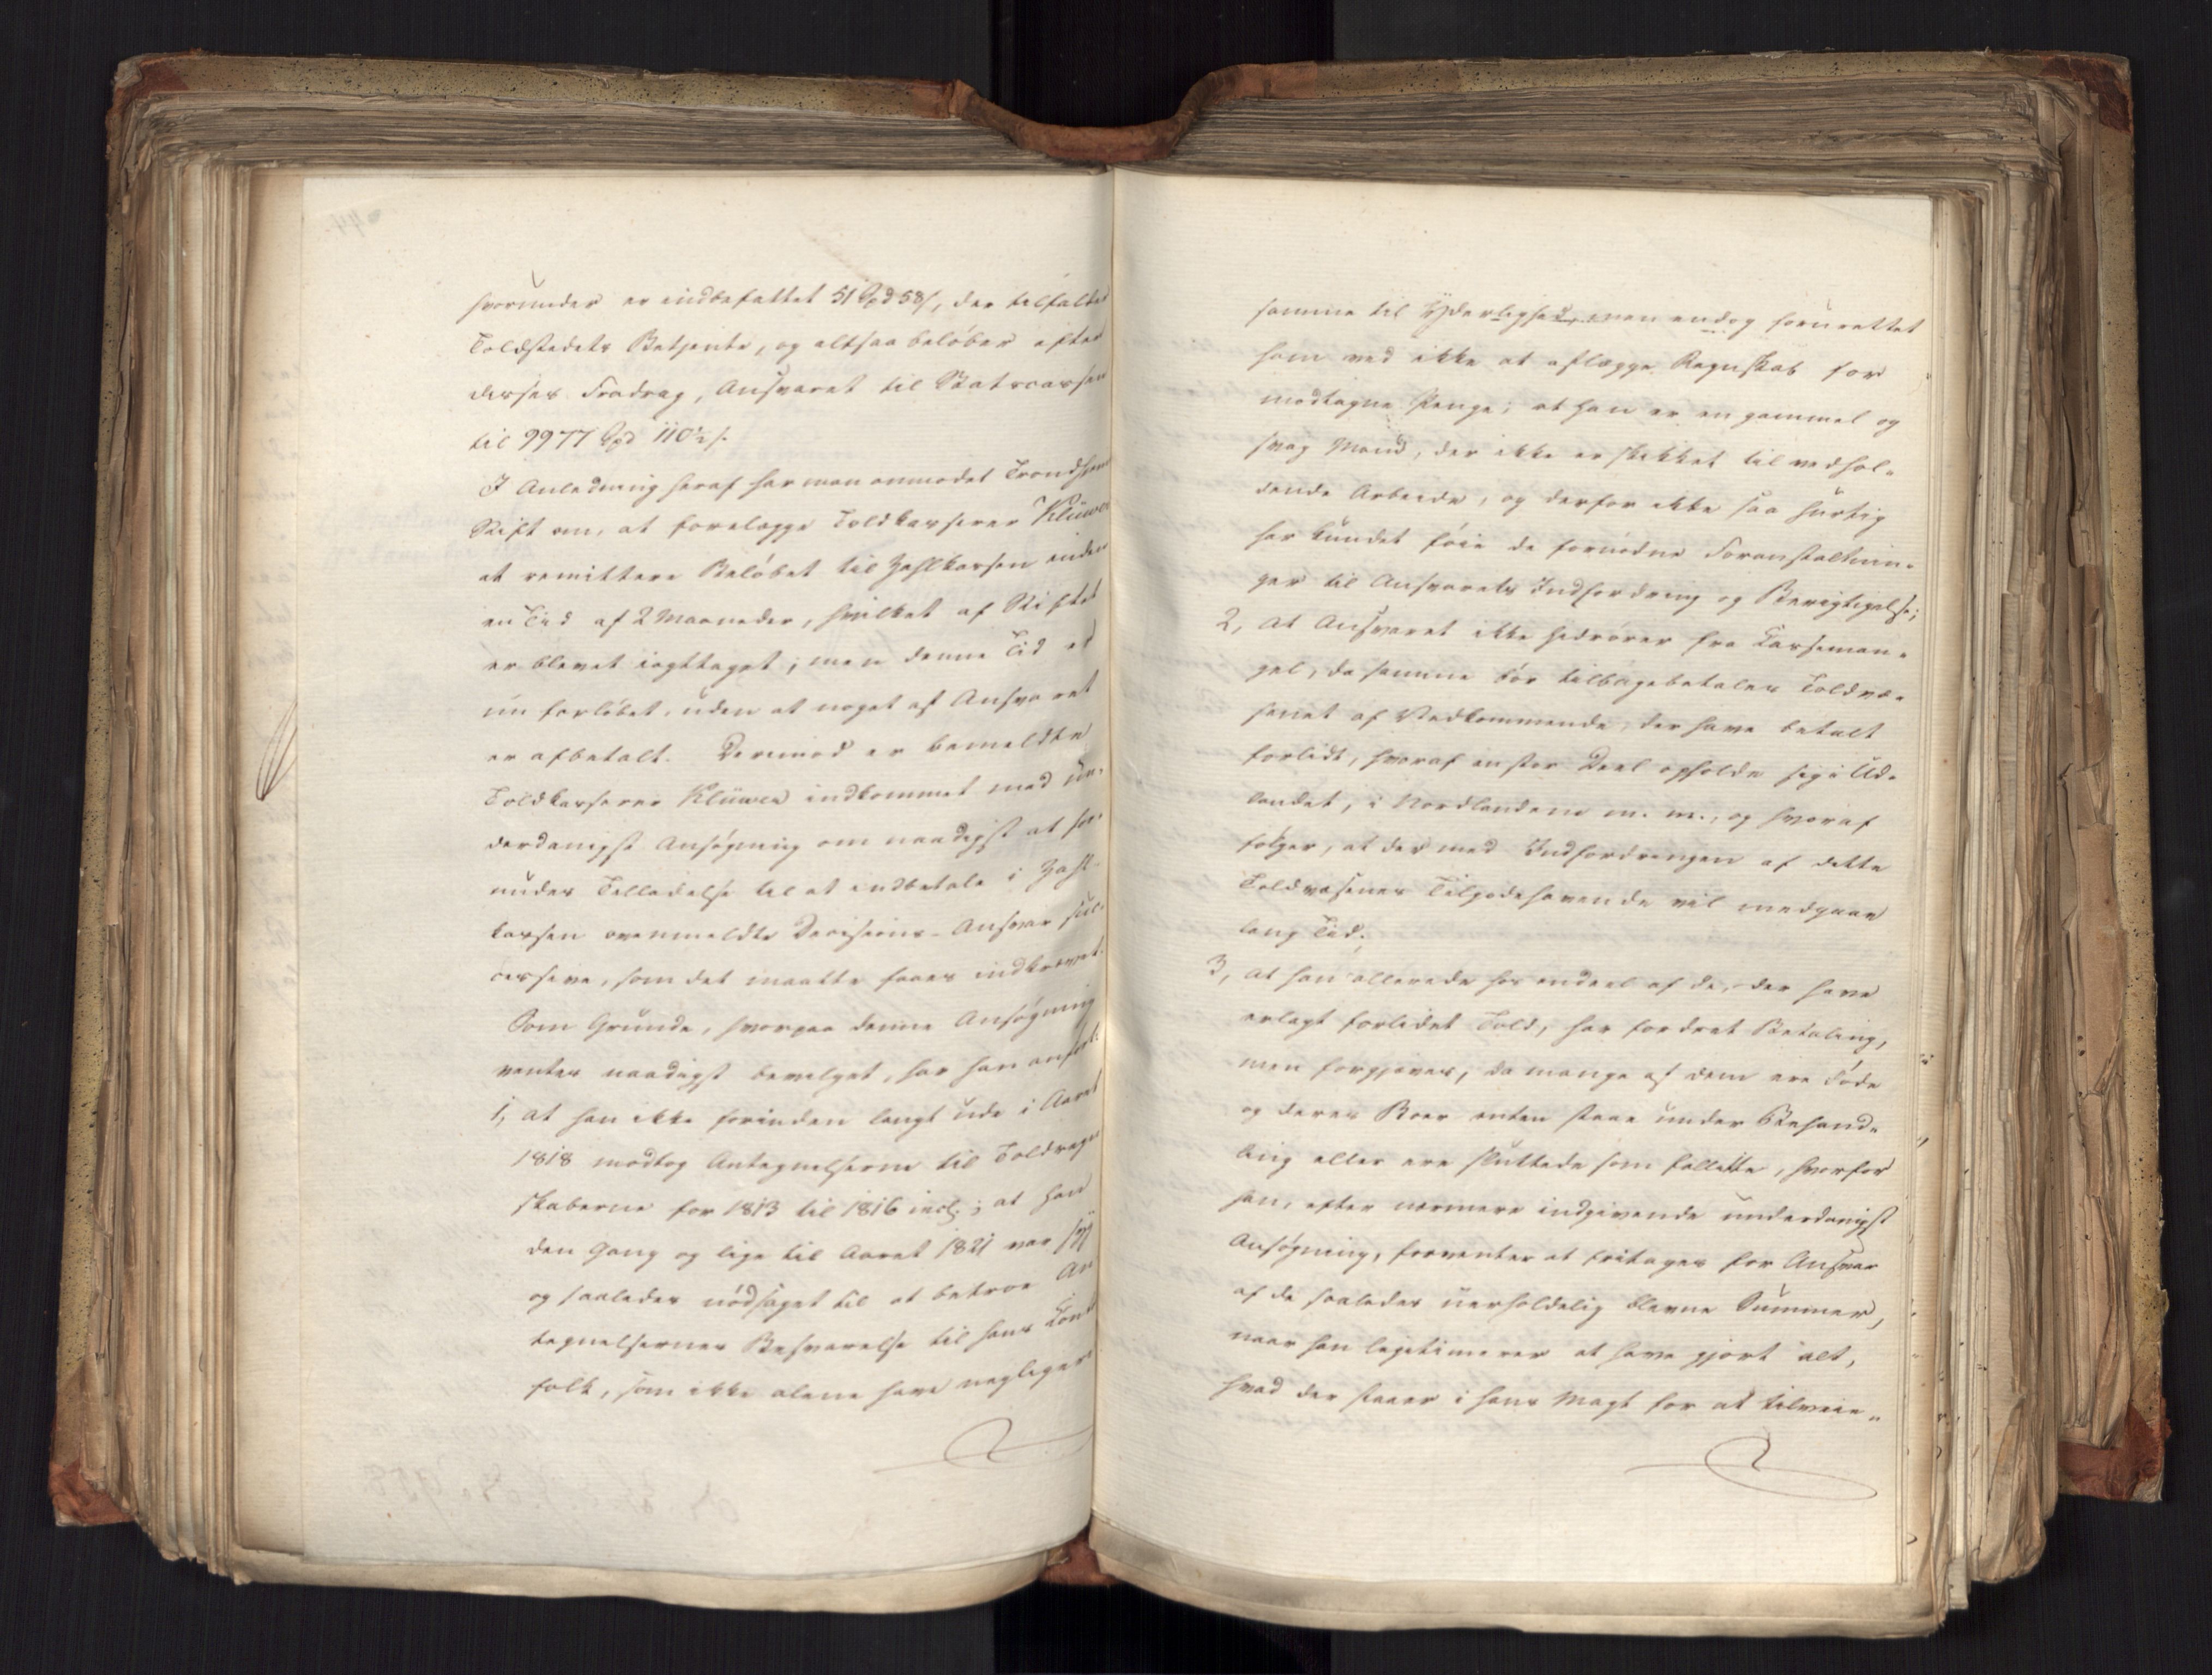 hvorunder er indbefattet 51 Spd 58 s, der tilfalder
Toldstedets Betjente, og altsaa beløber efter
disses Fradrag, Ansvaret til Statscassen
til 9977 Spd 110½ s.
I Anledning heraf har man anmodet Trondhjems
Stift om, at forelægge Toldkasserer Klüwer
at remittere Beløbet til Zahlkassen inden
en Tid af 2 Maaneder, hvilket af Stiftet
er blevet iagttaget; men denne Tid er
nu forløbet, uden at noget af Ansvaret
er afbetalt. Derimod er bemeldte
Toldkasserer Klüwer indkommet med un-
derdanigst Ansøgning om naadigst at for-
undes Tilladelse til at indbetale i Zahl-
kassen ovenmeldte Decisions-Ansvar suc-
cessive, som det maatte faaes indkrævet.
Som Grunde, hvorpaa denne Ansøgning
ventes naadigst bevilget, har han anført:
1, at han ikke forinden langt ude i Aaret
1818 modtog Antegnelserne til Toldregn
skaberne for 1813 til 1816 incl.; at han
den Gang og lige til Aaret 1821 var syg
og saaledes nødsaget til at betroe An
tegnelsernes Besvarelse til hans Cont
folk, som ikke alene have negligere
samme til Yderlighed, men endog forurettet
ham ved ikke at aflægge Regnskab for
modtagne Penge; at han er en gammel og
svag Mand, der ikke er skikket til vedhol-
dende Arbeide, og derfor ikke saa hurtig
har kundet føie de fornødne Foranstaltnin-
ger til Ansvarets Indfordring og Berigtigelse;
2, at Ansvaret ikke hidrører fra Casseman-
gel, da samme bør tilbagebetales Toldvæ-
senet af Vedkommende, der have betalt
forlidt, hvoraf en stor Deel opholde sig i Ud-
landet, i Nordlandene m. m., og hvoraf
følger, at der med Indfordringen af dette
Toldvæsenets Tilgodehavende vil medgaae
lang Tid.
3, at han allerede hos endeel af de, der have
erlagt forlidet Told, har fordret Betaling,
men forgjæves, da mange af dem ere døde
og deres Boer enten staae under Behand-
ling eller ere sluttede som fallitte, hvorfor
han, efter nærmere indgivende underdanigst
Ansøgning, forventer at fritages for Ansvar
af de saaledes uerholdelig blevne Summer,
naar han legitimerer at have gjort alt,
hvad der staaer i hans Magt for at tilveie-